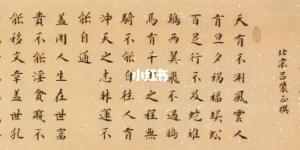 北宋呂蒙正撰
天有不測風雲人
有旦夕禍福蜈蚣
百足行不及蛇雄
鷄兩翼飛不過鴉
馬有千里之程無
騎不能自往人有
沖天之志非運不
能自通
蓋聞人生在世富
貴不能淫貧賤不
能移文章蓋世孔
小红书